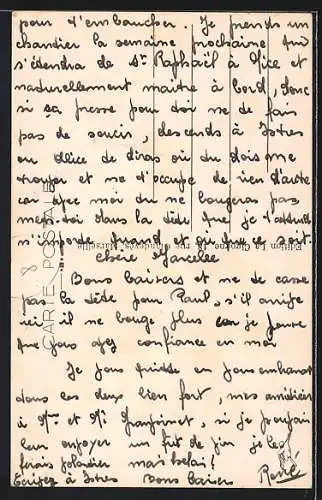 pour t'embaucher. Je prends un
chantier la semaine prochaine qui
s'étendra de St Raphaël à Nice et
naturellement maitre à bord, donc
si ça presse pour toi ne te fais
pas de soucis, descends à Istres
ou Alice te diras où tu dois me
trouver et ne t'occupe de rien d'autre
car avec moi tu ne bougeras pas
mets-toi dans la tête que je t'attends
n'importe quand et où que ce soit.
Chère Marcelle
Bons baisers et ne te casse
pas la tête pour Paul, s'il arrive
ici il ne bouge plus car je
que vous ayez confiance en moi
Je vous quitte en vous embrassant
tous les deux bien fort, mes amitiés
à Mme et Mr, si je pouvais
leur envoyer un fût de vin je le
ferais volontier mais helas!
Ecrivez à Istres Bons baisers René
CARTE POSTALE
Edition La Cigogne, rue Marseille